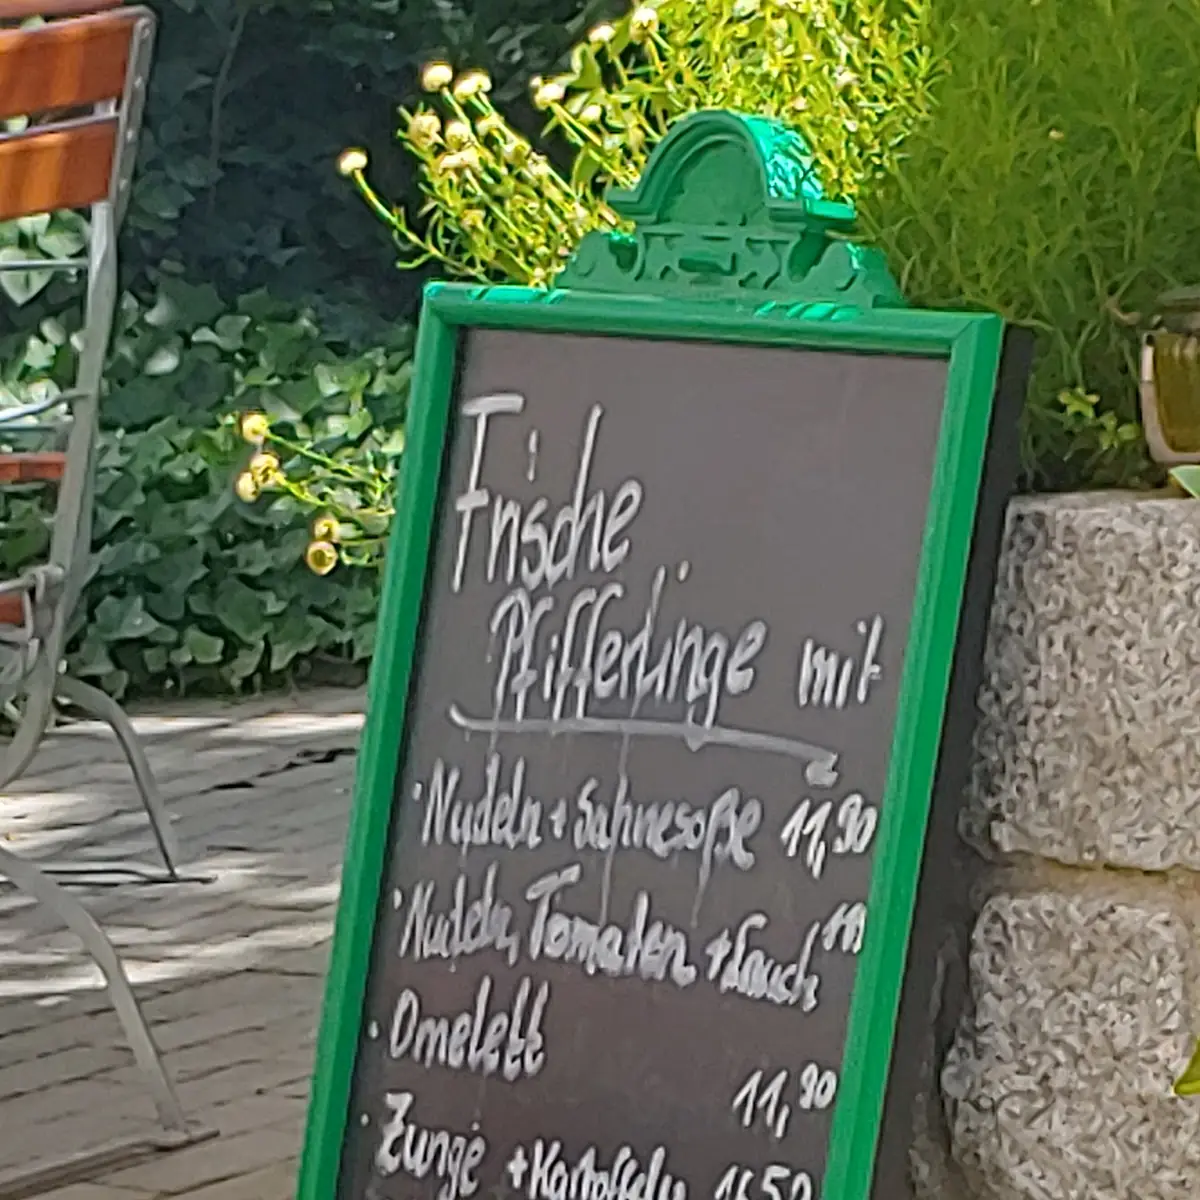 Frische
Pfifferlinge mit
· Nudeln + Sahnesoße 11,90
· Nudeln, Tomaten + Lauch
· Omelett
11,90
· Zunge + Kartoffeln 16,50